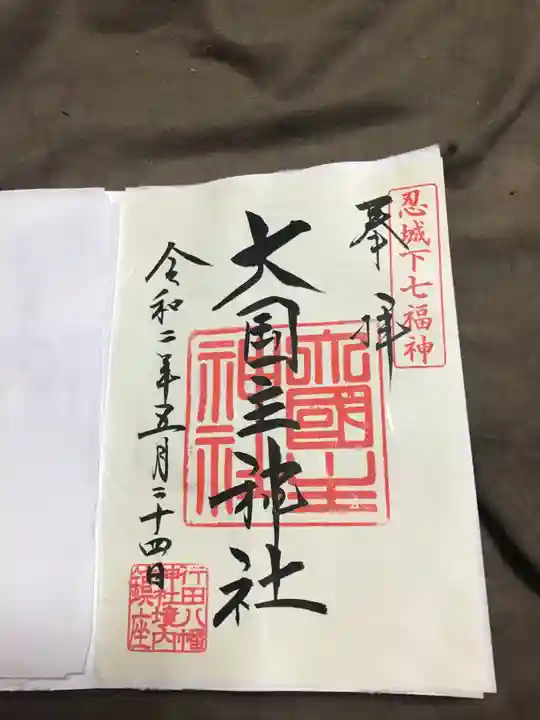 忍城下七福神
奉拝
大国主神社
大國主
神社
令和二年五月二十四日
行田八幡
神社境内
鎮座